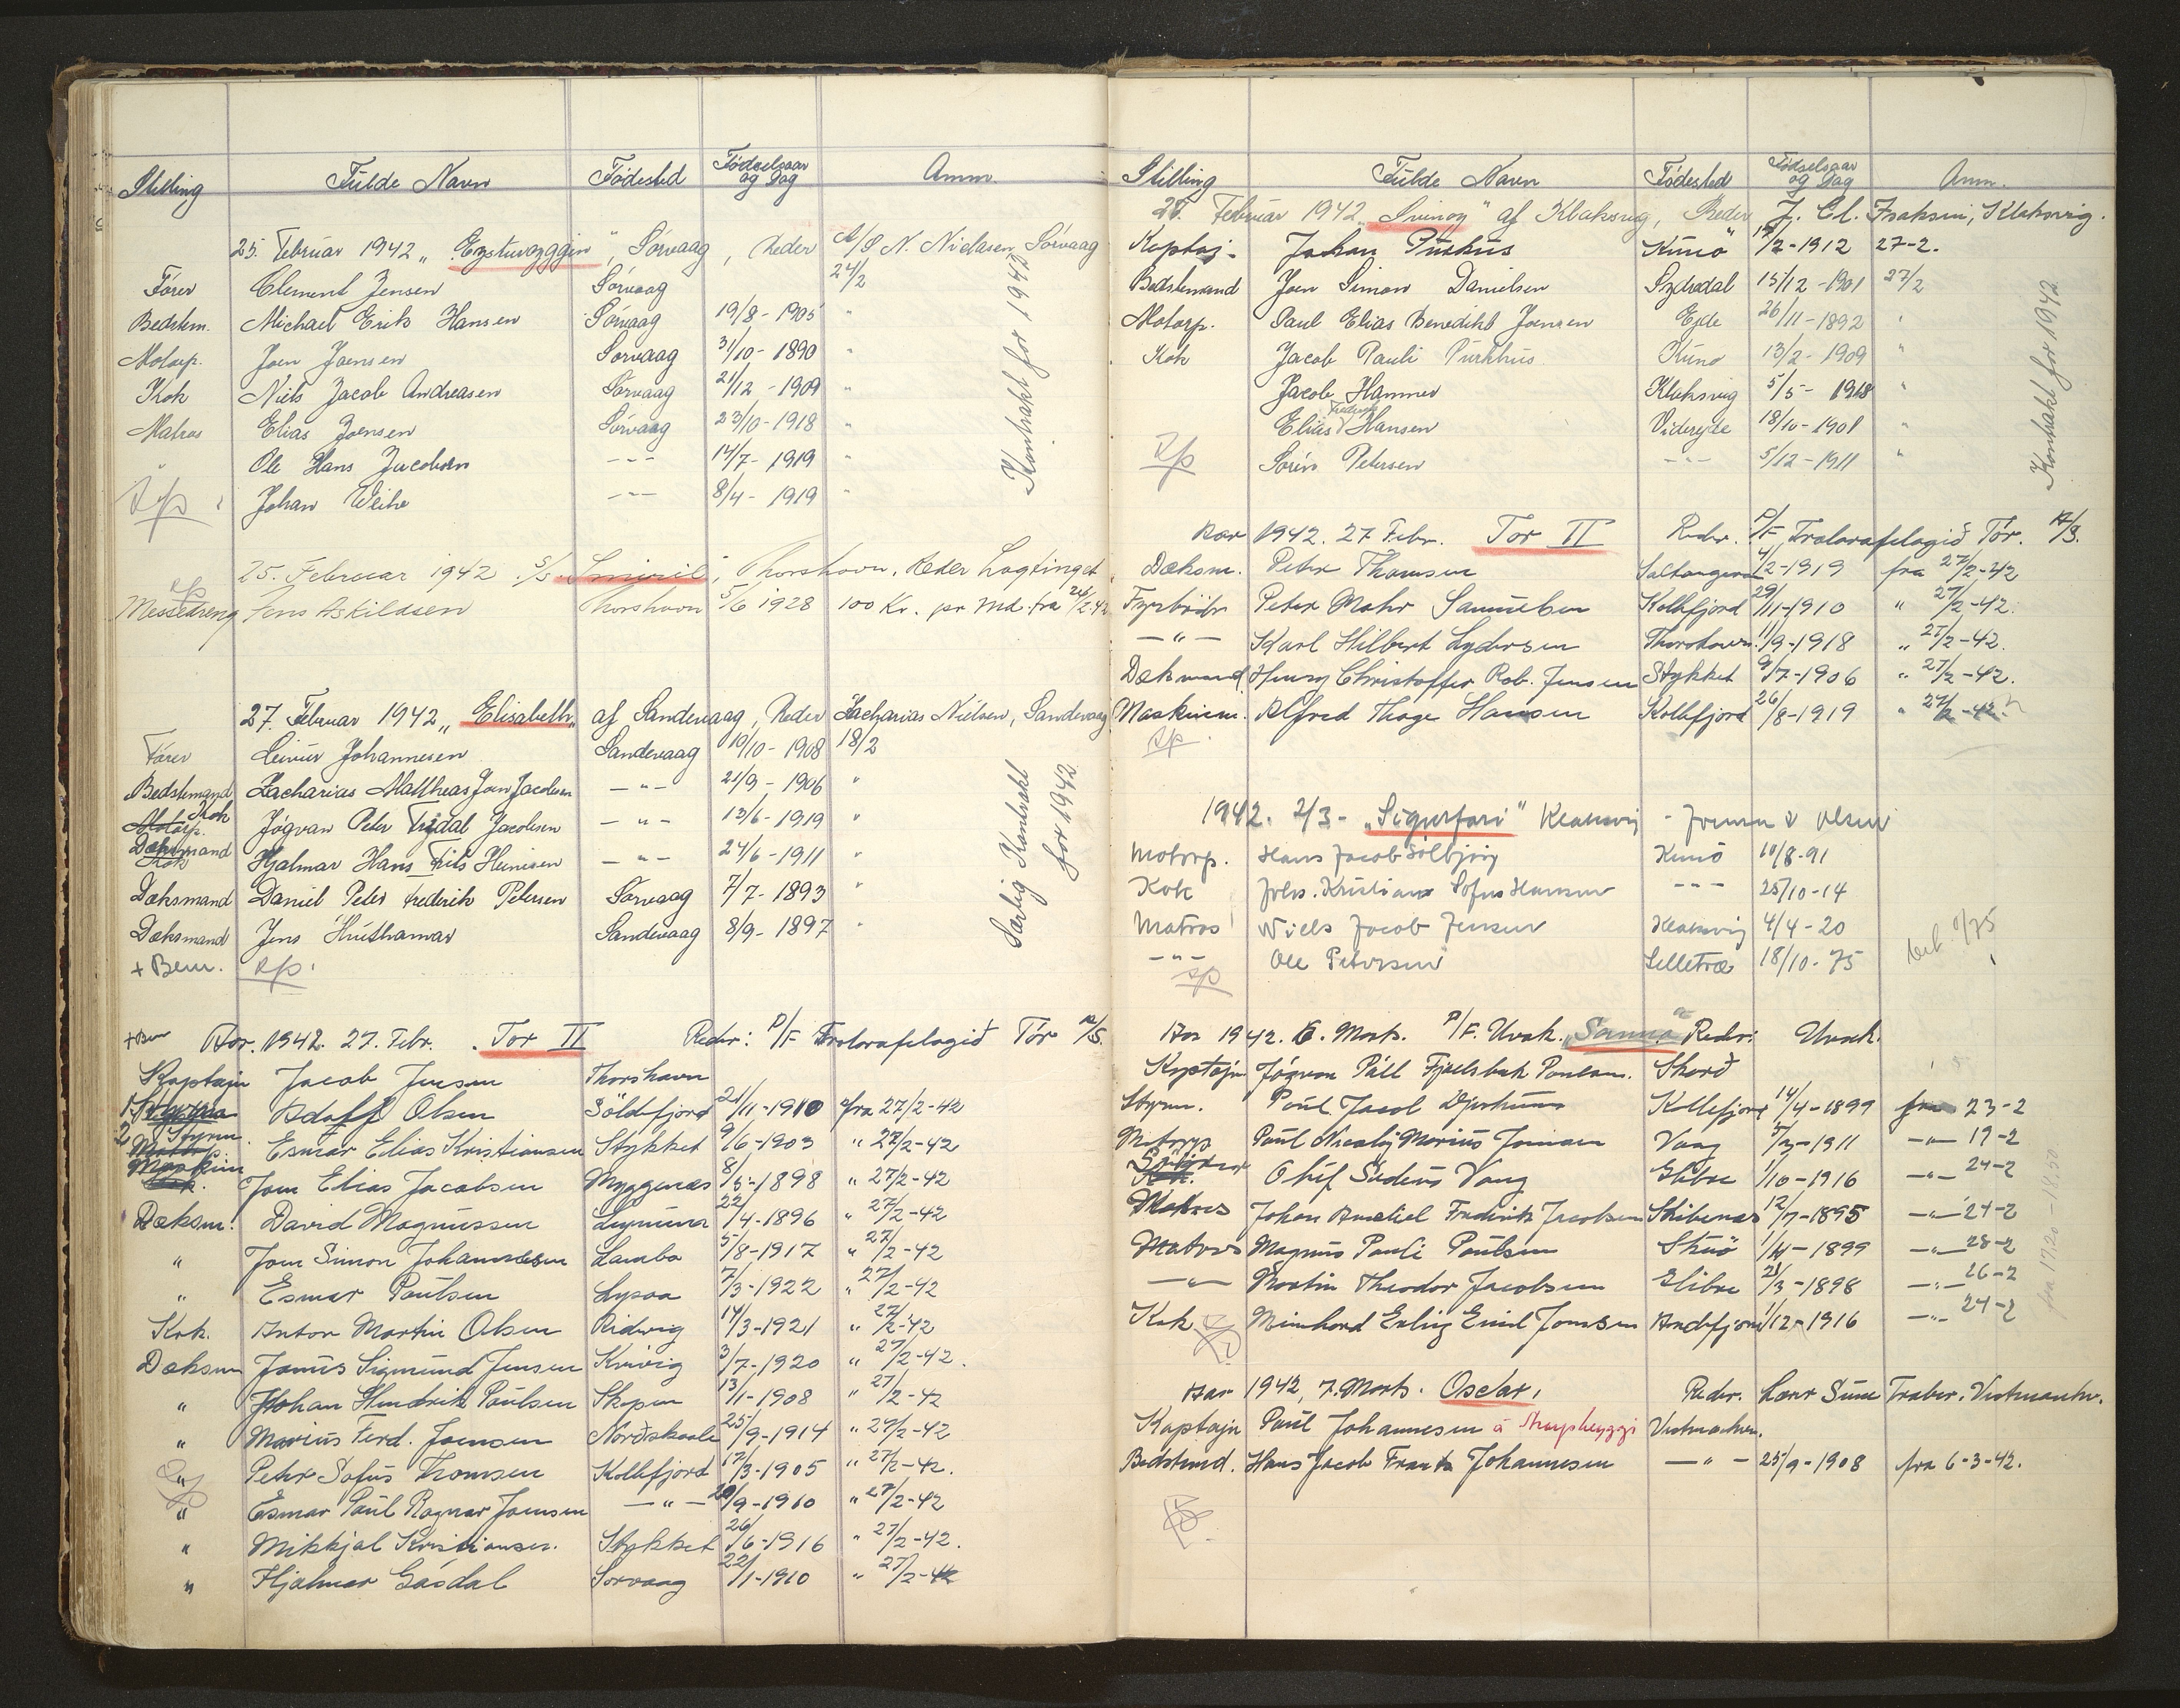 Stilling Fulde Navn Fødested Fødselsaar og Dag Anm.
25. Februar 1942 „Eysturoyggin", Sørvaag, Reder A/S N. Niclasen, Sørvaag
Fører Clement Jensen Sørvaag 24/2
Bedstem. Michael Erik Hansen Sørvaag 19/8 - 1905 "
Motorp. Joen Joensen Sørvaag 31/10 - 1890 "
Kok Niels Jacob Andreasen Sørvaag 21/12 - 1909 "
Matros Elias Joensen Sørvaag 23/10 - 1918 "
" Ole Hans Jacobsen - " - 14/7 - 1919 "
" Johan Weihe - " - 8/4 - 1919 "
Kontrakt for 1942
25. Februar 1942 S/S „Smiril", Thorshavn, Reder Lagtinget
Messedreng Jens Askildsen Thorshavn 5/6 1928 100 Kr. pr Md. fra 24/2-42
27. Februar 1942 „Elisabeth" af Sandevaag, Reder Zacharias Nielsen, Sandevaag
Fører Leivur Johannesen Sandevaag 19/10 - 1908 18/2
Bedstemand Zacharias Mattheas Joen Jacobsen - " - 21/9 - 1906 "
Motorp. Kok Jógvan Peter Trydal Jacobsen - " - 13/6 - 1919 "
Dæksmand Kok Hjalmar Hans Frits Heinesen - " - 24/6 - 1911 "
Dæksmand Daniel Peter Frederik Petersen Sørvaag 7/7 - 1893 "
Dæksmand Jens Hústhamar Sandevaag 8/9 - 1897 "
+ Bem.
Særlig Kontrakt for 1942
+Bem Aar. 1942. 27. Febr. „Tor II Reder: P/F Trolarafelagið Tór A/S.
Kaptajn Jacob Jensen Thorshavn
1. Styrma Adolf Olsen Söldefjord 21/11-1910 fra 27/2-42
2 Styrm. Esmar Elias Kristiansen Stykket 9/6-1903 " 27/2-42
Maskin Jom Elias Jacobsen Myggenæs 8/5-1898 " 27/2-42
Dæksm. David Magnussen Lynum 22/4-1896 " 27/2-42
" Jom Simon Johannesen Lamba 5/8-1917 " 27/2-42
" Esmar Poulsen Lysaa 7/3-1922 " 27/2-42
Kok. Anton Martin Olsen Ridevig 14/3-1921 " 27/2-42
Dæksm Janus Sigmund Jensen Kvivig 3/7-1920 " 27/2-42.
" Johan Hendrik Poulsen Skopun 13/1-1908 " 27/2-42
" Marius Ferd. Joensen Norðskaale 25/9-1914 " 27/2-42
" Peter Sofus Thomsen Kollefjord 17/3-1905 " 27/2-42.
" Esmar Poul Ragnar Joensen - " - 20/9-1910 " 27/2-42
" Mikkjal Kristiansen. Stykket 26/6-1916 " 27/2-42.
" Hjalmar Gásdal Sorvaag 22/1-1910 " 27/2-42
Stilling Fulde Navn Fødested Fødselsaar og Dag Anm.
27. Februar 1942 „Svinoy" af Klaksvig, Reder J. Cl. Isaksen, Klaksvig.
Kaptaj- Johan Purkhús Kunø 12/2-1912 27-2.
Bedstemand Joen Simon Danielsen Sydradal 15/12 - 1901 27/2
Motorp. Paul Elias Benedikt Joensen Ejde 26/11 - 1892 "
Kok Jacob Pauli Purkhús Kunø 13/2 - 1909 "
Jacob Hammer Klaksvig 5/5 - 1918 "
Elias Frederik Hansen Videreyde 18/10 - 1901 "
Sørin Petersen - " - 5/12 - 1911 "
Kontrakt for 1942
Aar 1942. 27 Febr. Tor II Reder. P/F Trolarafelagið Tór. A/S.
Dæksm. Peter Thomsen Saltangera 4/2-1919 fra 27/2-42
Fyrbødr Peter Mohr Samuelsen Kollefjord 29/11-1910 " 27/2-42.
- " - Karl Hilbert Lydersen Thorshavn 11/9-1918 " 27/2-42.
Dæksmand. Henry Christoffer Rob. Jensen Stykket 9/7-1906 " 27/2-42.
Maskinm. Alfred Thage Hansen Kollefjord 26/8-1919 " 27/2-42.
1942. 2/3 - „Sigurfari" Klaksvig - Joensen & Olsen
Motorp. Hans Jacob Sólbjørg Kunø 10/8-91
Kok Johs. Kristian Sofus Hansen - " - 25/10-14
Matros Niels Jacob Jensen Klaksvig 4/4-20
- " - Ole Petersen Selletræ 18/10-75
Aar 1942. 6. Marts. P/F. Uvak. „Sanna" Reder: Uvak.
Kaptajn Jógvan Páll Fjallsbak Poulsen. Skorð
Styrm. Poul Jacob Djurhuus Kollefjord 14/4-1899 fra 23-2
Motorp Poul Nicolaj Marius Joensen Vaag 5/3-1911 - " - 19-2
Olúf Sudenus Vang Glibre 1/10-1916 - " - 24-2
Matros Johan Amaliel Fredrik Jacobsen Skibenæs 12/7-1895 - " - 24-2
Matros Magnus Pauli Poulsen Skuø 1/4-1899 - " - 28-2
- " - Martin Theodor Jacobsen Glibre 21/3-1898 - " - 26-2
Kok Meinhard Erling Emil Joensen Andefjord 1/12-1916 - " - 24-2
Aar 1942, 7. Marts. Oscar, Reder. Vestmanhv.
Kaptajn Poul Johannesen á Vestmanhvn.
Bedstemd. Hans Jacob Frants Johannesen - " - 25/9-1908 fra 6-3-42.